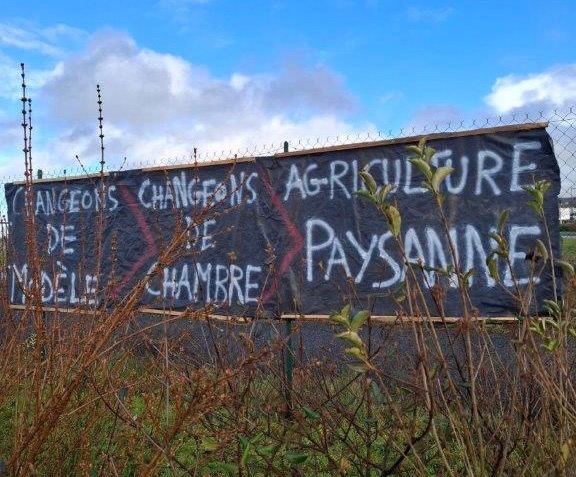 CHANGEONS
DE
MODÈLE
CHANGEONS
DE
CHAMBRE
AGRICULTURE
PAYSANNE